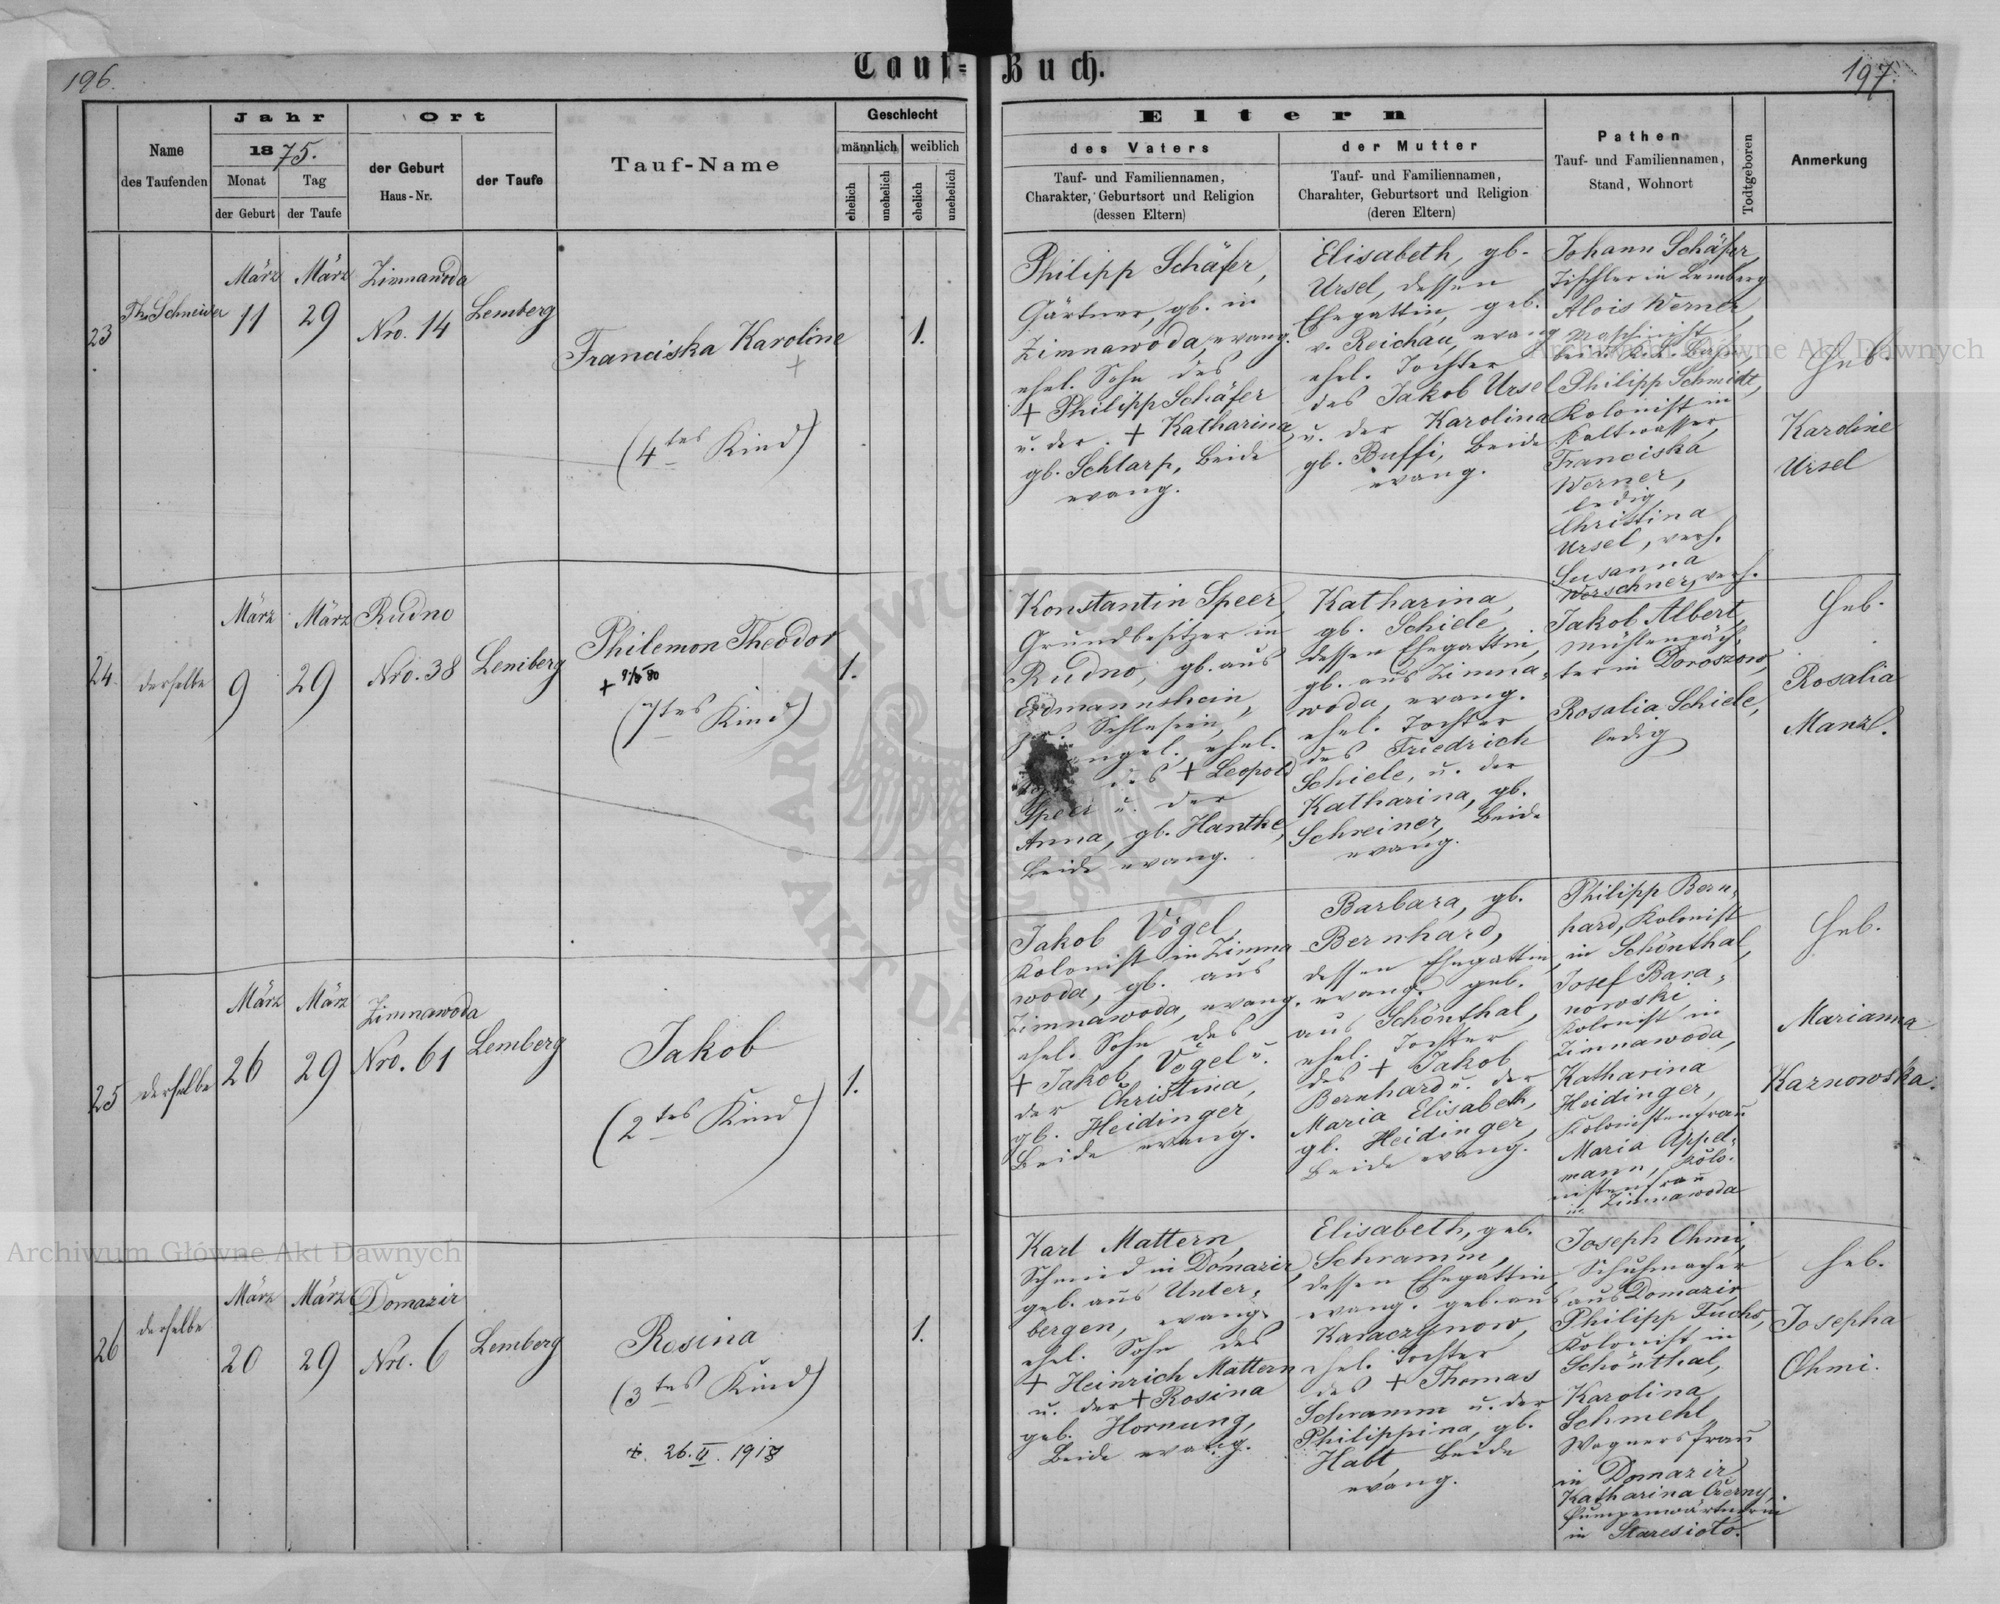 196.
Tauf-Buch.
197.
Name
des Taufenden
Jahr
1875.
Monat
Tag
der Geburt
der Taufe
Ort
der Geburt
Haus-Nr.
der Taufe
Tauf-Name
Geschlecht
männlich
weiblich
ehelich
unehelich
ehelich
unehelich
Eltern
des Vaters
Tauf- und Familiennamen,
Charakter, Geburtsort und Religion
(dessen Eltern)
der Mutter
Tauf- und Familiennamen,
Charahter, Geburtsort und Religion
(deren Eltern)
Pathen
Tauf- und Familiennamen,
Stand, Wohnort
Todtgeboren
Anmerkung
23
Th. Schneider
März
11
März
29
Zimnawoda
Nro. 14
Lemberg
Franciska Karoline
+
(4tes Kind)
1.
Philipp Schäfer,
Gärtner, gb. in
Zimnawoda, evang.
ehel. Sohn des
+ Philipp Schäfer
u. der + Katharina,
gb. Schlarp, Beide
evang.
Elisabeth, gb.
Ursel, dessen
Ehegattin, geb.
v. Reichau, evang
ehel. Tochter
des Jakob Ursel
u. der Karolina
gb. Buffi, Beide
evang.
Johann Schäfer,
Tischler in Lemberg
Alois Werner,
Maschinist
bei d. k.k. Bahn
Philipp Schmidt,
Kolonist in
Kaltwasser,
Franciska
Werner,
ledig,
Christina
Ursel, verh.
Susanna
Werschner, verh.
Geb.
Karoline
Ursel
24.
derselbe
März
9
März
29
Rudno
Nro. 38
Lemberg
Philemon Theodor
+
(7tes Kind)
1.
Konstantin Speer,
Grundbesitzer in
Rudno, gb. aus
Erdmannshein,
Schlesien,
ehel.
des + Leopold
Speer u. der
Anna, gb. Hantke,
Beide evang.
Katharina,
gb. Schiele,
dessen Ehegattin,
gb. aus Zimna-
woda, evang.
ehel. Tochter
des Friedrich
Schiele, u. der
Katharina, gb.
Schreiner, Beide
evang.
Jakob Albert,
Mühlenpäch-
ter in Doroszow,
Rosalia Schiele,
ledig
Geb.
Rosalia
Manz.
25
derselbe
März
26
März
29
Zimnawoda
Nro. 61
Lemberg
Jakob
(2tes Kind)
1.
Jakob Vogel,
Kolonist in Zimna
woda, gb. aus
Zimnawoda, evang.
ehel. Sohn des
+ Jakob Vogel u.
der Christina,
gb. Heidinger,
Beide evang.
Barbara, gb.
Bernhard,
dessen Ehegattin,
evang. geb.
aus Schönthal,
ehel. Tochter
des + Jakob
Bernhard u. der
Maria Elisabeth,
gb. Heidinger,
Beide evang.
Philipp Bern-
hard, Kolonist
in Schönthal,
Josef Bara-
nowski,
Kolonist in
Zimnawoda,
Katharina
Heidinger,
Kolonistenfrau
Maria Appel-
mann, Kolo-
nistenfrau
in Zimnawoda
Geb.
Marianna
Karnowska.
26
derselbe
März
20
März
29
Domazir
Nro. 6
Lemberg
Rosina
(3tes Kind)
1.
Karl Mattern,
Schmied in Domazir,
geb. aus Unter-
bergen, evang.
ehel. Sohn des
+ Heinrich Mattern
u. der + Rosina
geb. Hornung,
Beide evang.
Elisabeth, geb.
Schramm,
dessen Ehegattin,
evang. geb. aus
Karaczynow,
ehel. Tochter
des + Thomas
Schramm u. der
Philippina, gb.
Habt, Beide
evang.
Joseph Ohmi,
Schuhmacher
aus Domazir
Philipp Fuchs,
Kolonist in
Schönthal,
Karolina
Schmehl,
Wagnersfrau
in Domazir
Katharina Czerny,
in Staresioto.
Geb.
Josepha
Ohmi.
Archiwum Główne Akt Dawnych
Archiwum Główne Akt Dawnych